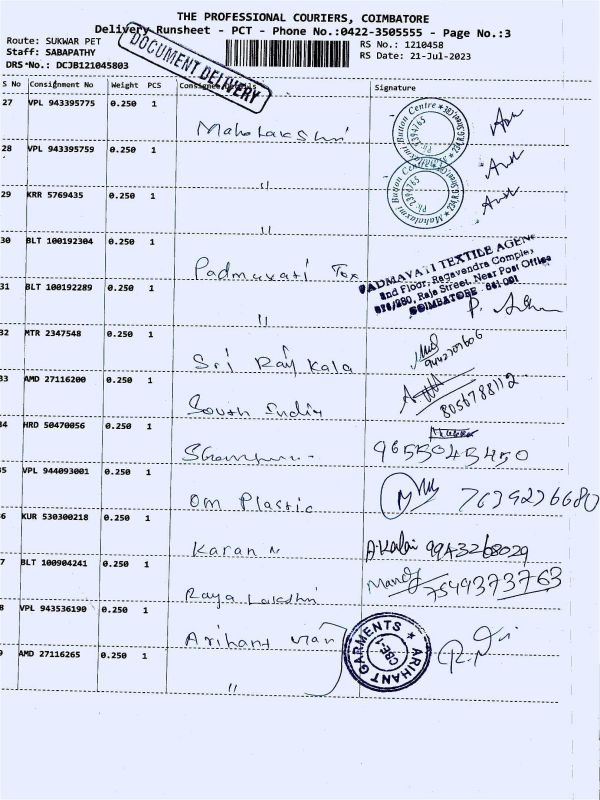 THE PROFESSIONAL COURIERS, COIMBATORE
Delivery Runsheet - PCT - Phone No.:0422-3505555 - Page No.:3
Route: SUKWAR PET
RS No.: 1210458
Staff: SABAPATHY
RS Date: 21-Jul-2023
DRS No.: DCJB121045803
DOCUMENT DELIVERY
S No Consignment No Weight PCS Signature
27 VPL 943395775 0.250 1
Mahalakshmi
Mahalaxmi Button Centre
Ph: 2394765
28 VPL 943395759 0.250 1
"
Mahalaxmi Button Centre
Ph: 2394765
29 KRR 5769435 0.250 1
"
30 BLT 100192304 0.250 1
Padmavati Tex
PADMAVATI TEXTILE AGEN
2nd Floor, Ragavendra Complex
Raja Street, Near Post Office
COIMBATORE - 641-001
31 BLT 100192289 0.250 1
"
32 MTR 2347548 0.250 1
Sri Raj Kala
33 AMD 27116200 0.250 1
South India
8056788112
34 HRD 50470056 0.250 1
9655045450
35 VPL 944093001 0.250 1
Om Plastic
7639236680
6 KUR 530300218 0.250 1
Karan N
A.Kalai 9943268029
7 BLT 100904241 0.250 1
Raya Lakshmi
Manoj 7549373763
8 VPL 943536190 0.250 1
Arihant
ARIHANT GARMENTS
CBE
9 AMD 27116265 0.250 1
"